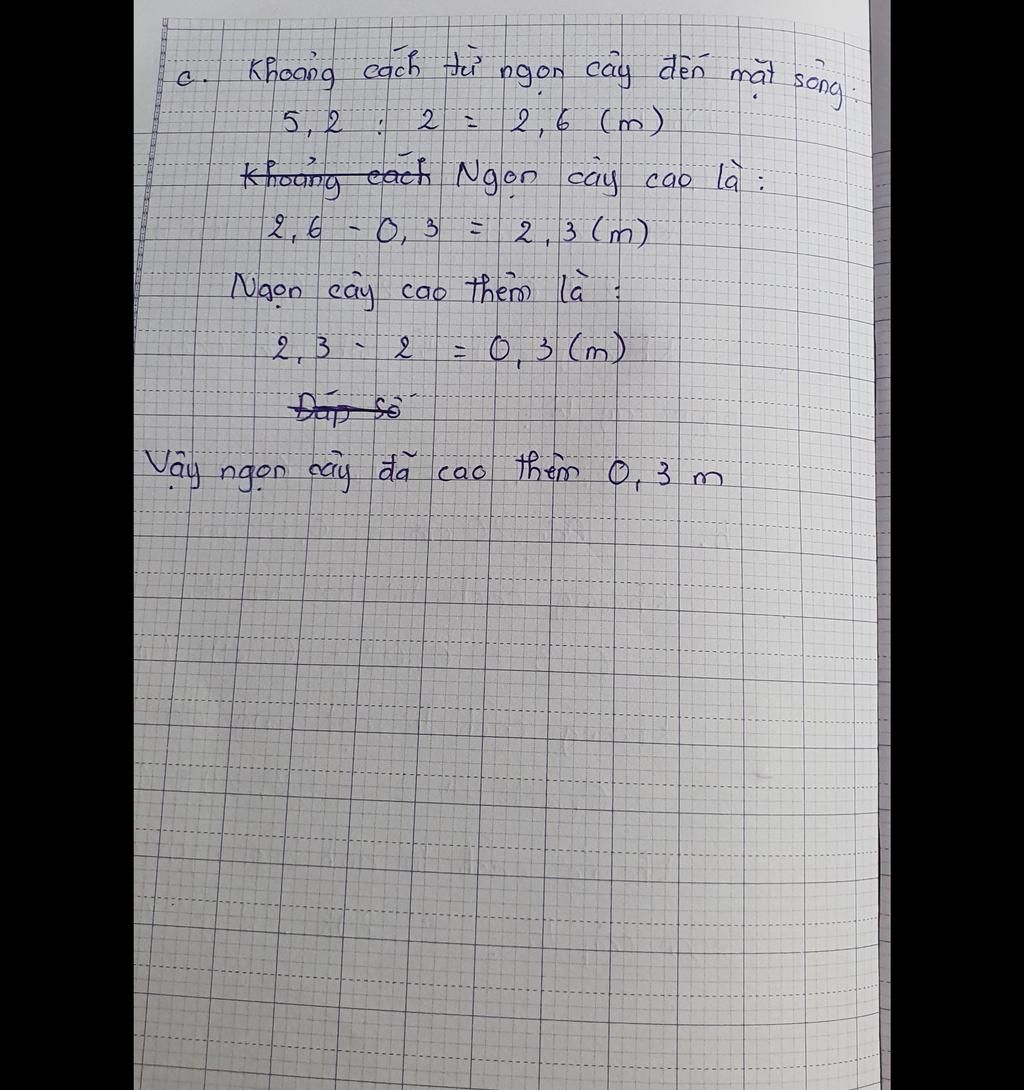 c. Khoảng cách từ ngọn cây đến mặt sông:
5,2 : 2 = 2,6 (m)
Khoảng cách Ngọn cây cao là :
2,6 - 0,3 = 2,3 (m)
Ngọn cây cao thêm là :
2,3 - 2 = 0,3 (m)
Đáp số
Vậy ngọn cây đã cao thêm 0,3 m